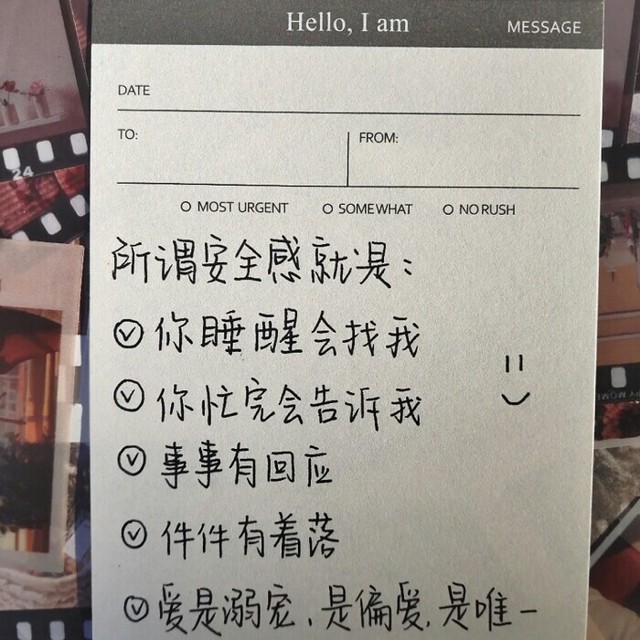 Hello, I am MESSAGE
DATE
TO: FROM:
MOST URGENT SOMEWHAT NO RUSH
所谓安全感就是：
你睡醒会找我
你忙完会告诉我
事事有回应
件件有着落
爱是溺宠、是偏爱、是唯一
24